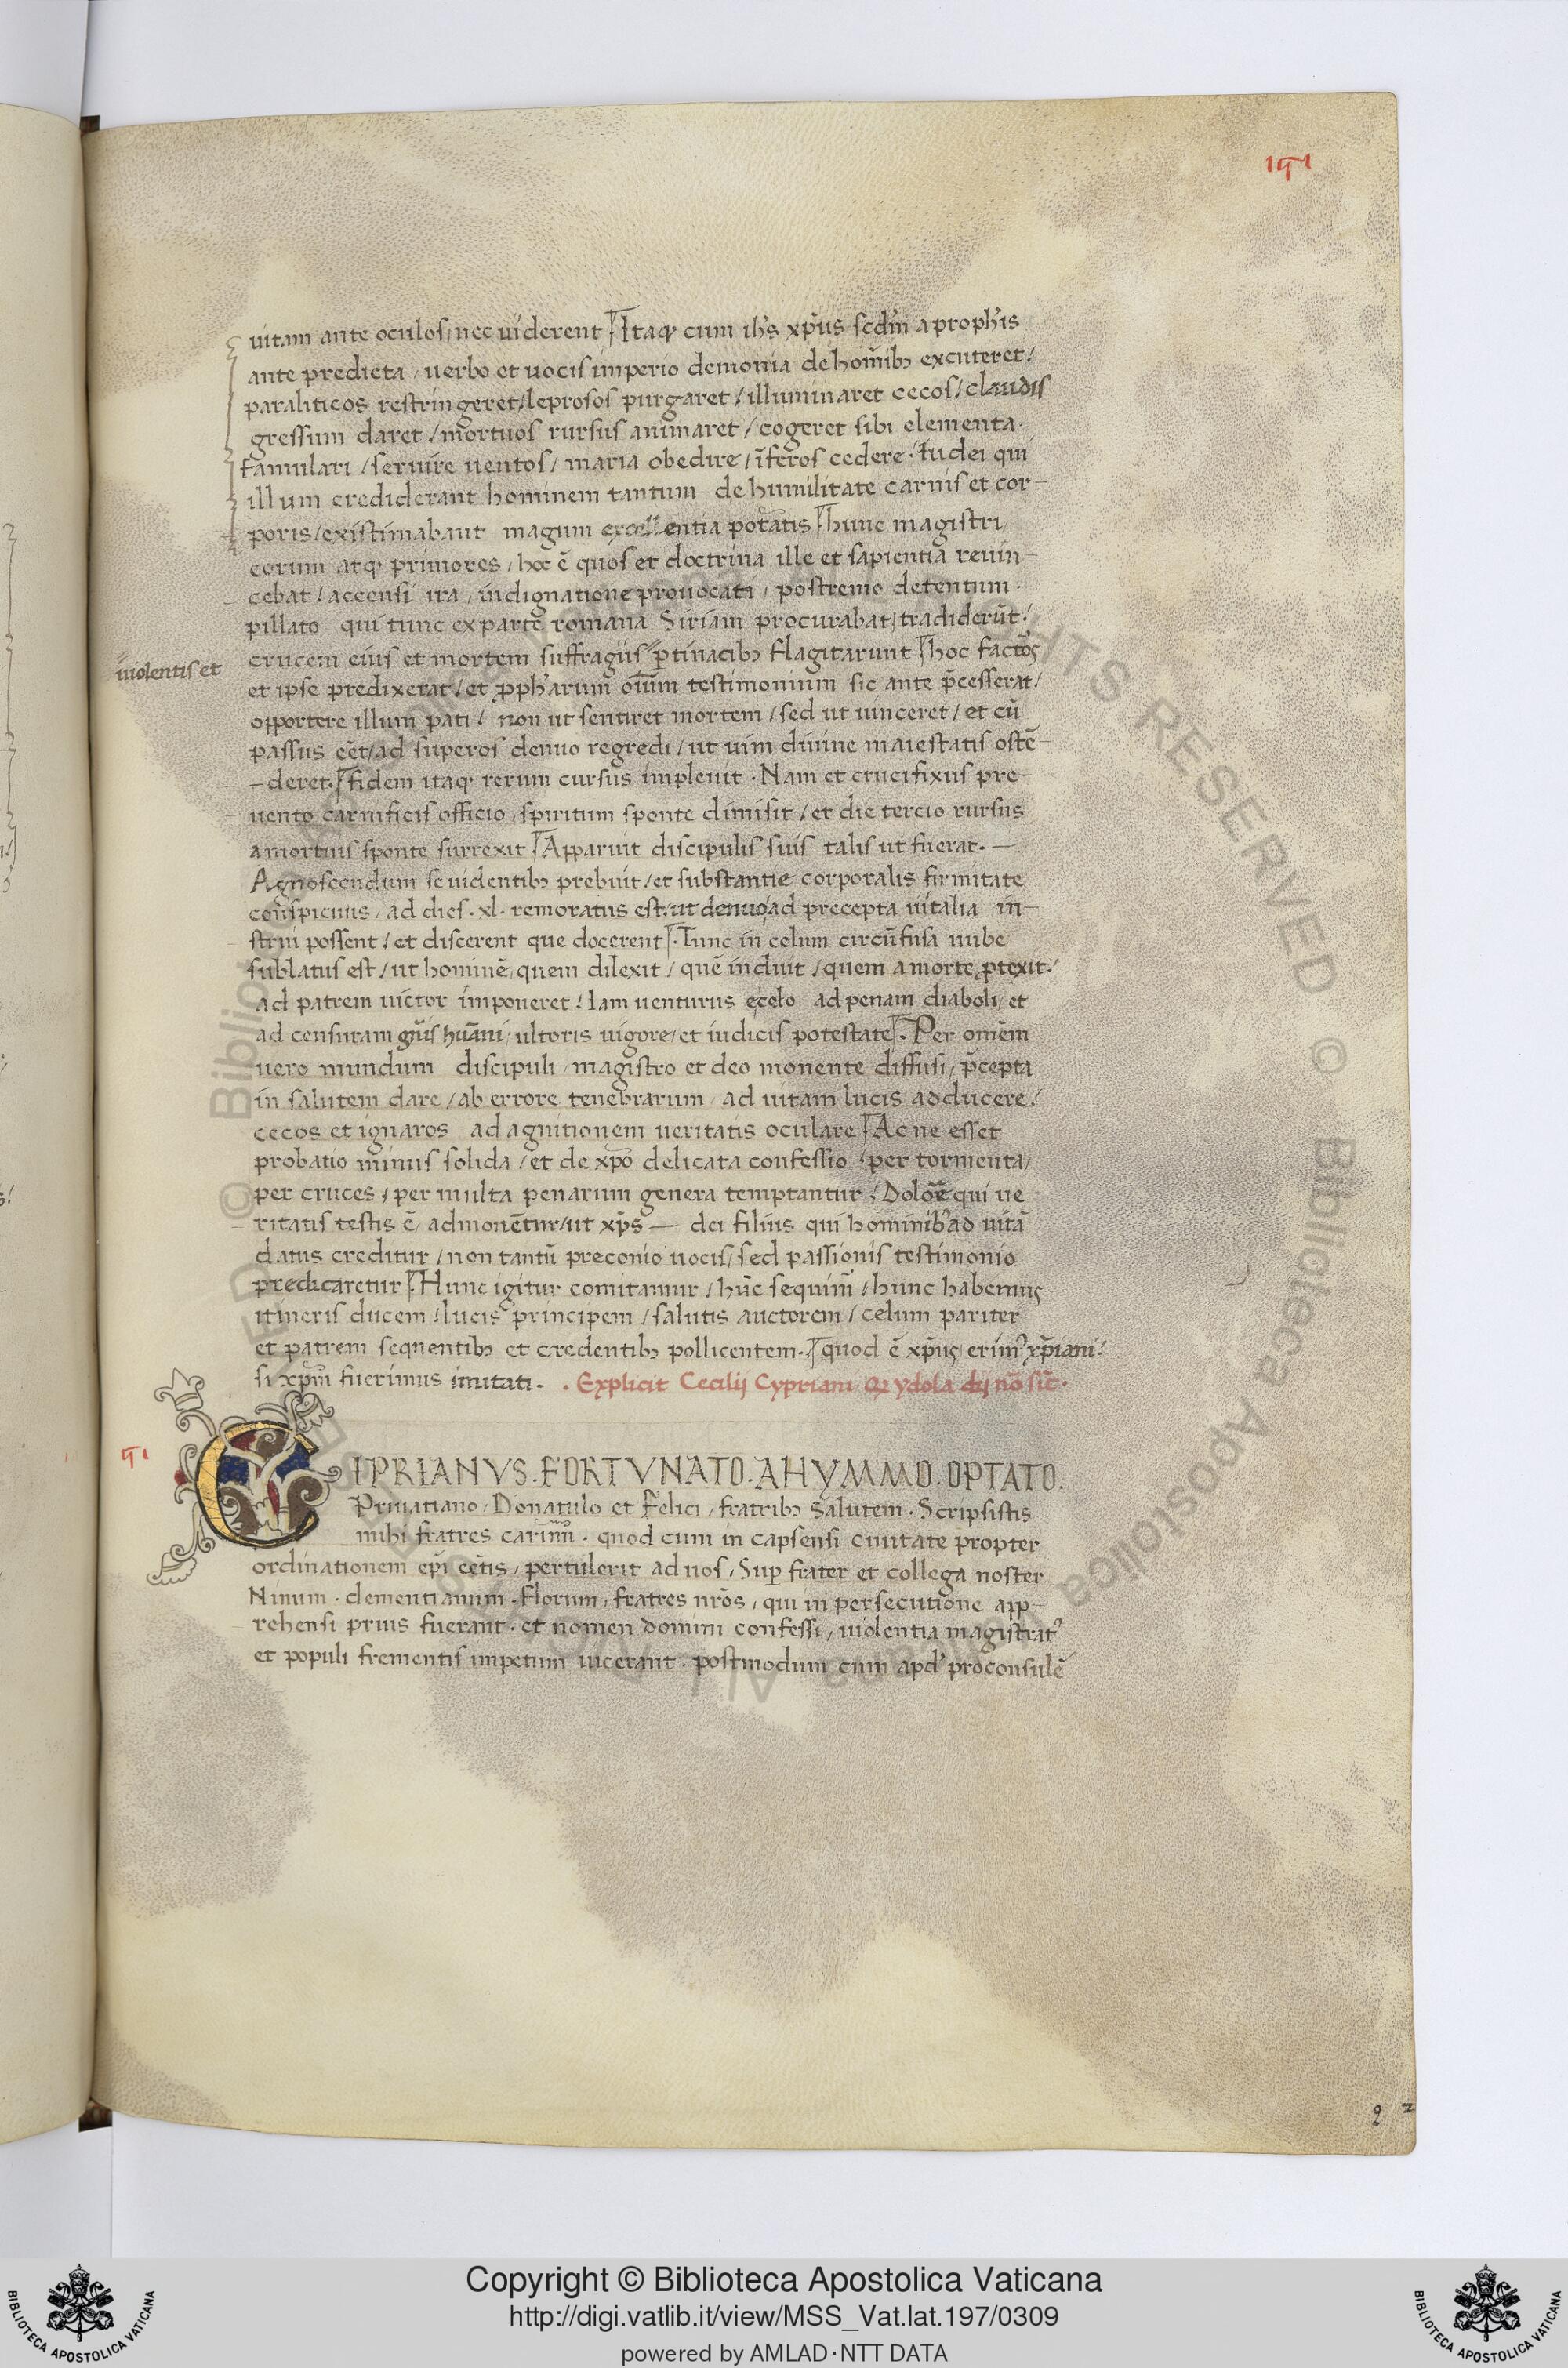 151
uitam ante oculos, nec uiderent Itaq; cum ih's xp̄us scdm̄ a proph'is
ante predicta, uerbo et uocis imperio demonia de hom̄ib; excuteret /
paraliticos restringeret / leprosos purgaret / illuminaret cecos / claudis
gressum daret / mortuos rursus animaret / cogeret sibi elementa.
famulari / seruire uentos / maria obedire / īferos cedere. Iudei qui
illum crediderant hominem tantum de humilitate carnis et cor-
poris / existimabant magum excellentia potātis hunc magistri,
eorum atq; primores, hoc ē quos et doctrina ille et sapientia reuin-
cebat / accensi ira, indignatione prouocati, postremo detentum.
pillato qui tunc ex parte romana Siriam procurabat, tradiderūt /
iuiolentis et
crucem eius et mortem suffragiis ꝑtinacib; flagitarunt hoc factos
et ipse predixerat / et ꝓph'arum oīum testimonium sic ante p̄cesserat /
opportere illum pati / non ut sentiret mortem / sed ut uinceret / et cū
passus eēt / ad superos denuo regredi / ut uim diuine maiestatis ostē-
-deret. fidem itaq; rerum cursus impleuit. Nam et crucifixus pre-
uento carnificis officio, spiritum sponte dimisit / et die tercio rursus
a mortuis sponte surrexit Apparuit discipulis suis talis ut fuerat. —
Agnoscendum se uidentib; prebuit / et substantie corporalis firmitate
conspicuus, ad dies. xl. remoratus est / ut denuo, ad precepta uitalia in-
strui possent / et discerent que docerent. Tunc in celum circūfusa nube
sublatus est / ut hominē, quem dilexit / quē induit / quem a morte ꝓtexit /
ad patrem uictor imponeret / Iam uenturus e celo ad penam diaboli, et
ad censuram gn̄is hūani, ultoris uigore, et iudicis potestate. Per omēm
uero mundum discipuli, magistro et deo monente diffusi, p̄cepta
in salutem dare / ab errore tenebrarum, ad uitam lucis adducere /
cecos et ignaros ad agnitionem ueritatis oculare Ac ne esset
probatio minus solida / et de xp̄o delicata confessio. per tormenta,
per cruces, per multa penarum genera temptantur. Dolor̄ē qui ue
ritatis testis ē, admonētur / ut xp̄s — dei filius qui hominib' ad uitā
datus creditur / non tantū preconio uocis, sed passionis testimonio
predicaretur Hunc igitur comitamur / hūc sequim̄ / hunc habemus
itineris ducem / lucis principem / salutis auctorem / celum pariter
et patrem sequentib; et credentib; pollicentem. quod ē xp̄us, erim' xp̄iani /
si xp̄m fuerimus imitati. . Explicit Cecilij Cypriani Q; ydola dij nō sīt.
51
CIPRIANVS. FORTVNATO. AHYMMO. OPTATO.
Priuatiano, Donatulo et Felici, fratrib; salutem. Scripsistis
mihi fratres carīmi. quod cum in capsensi ciuitate propter
ordinationem ep̄i eētis, pertulerit ad uos, Suꝑ frater et collega noster
Ninum. clementianum. Florum, fratres nr̄os, qui in persecutione app-
rehensi prius fuerant. et nomen domini confessi, uiolentia magistrat'
et populi frementis impetum uicerant. postmodum cum apd' proconsulē
2 2
Copyright © Biblioteca Apostolica Vaticana
http://digi.vatlib.it/view/MSS_Vat.lat.197/0309
powered by AMLAD·NTT DATA